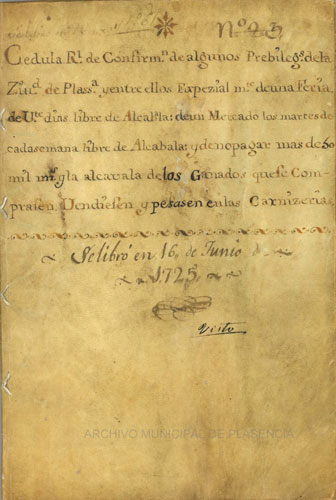 Nº 23
Cedula Rl. de Confirmn. de algunos Prebilegs. de la
Ziud. de Plasa. y entre ellos Expezial mte. de una Feria,
de Vte. dias libre de Alcabla: de un Mercado los martes de
cada semana libre de Alcabala: y de no pagar mas de 60
mil ms. pr. la alcavala de los Ganados que se Com-
prasen, Vendiesen y pesasen en las Carnizerias,
Se libró en 16, de Junio de
1725,
Visto
ARCHIVO MUNICIPAL DE PLASENCIA